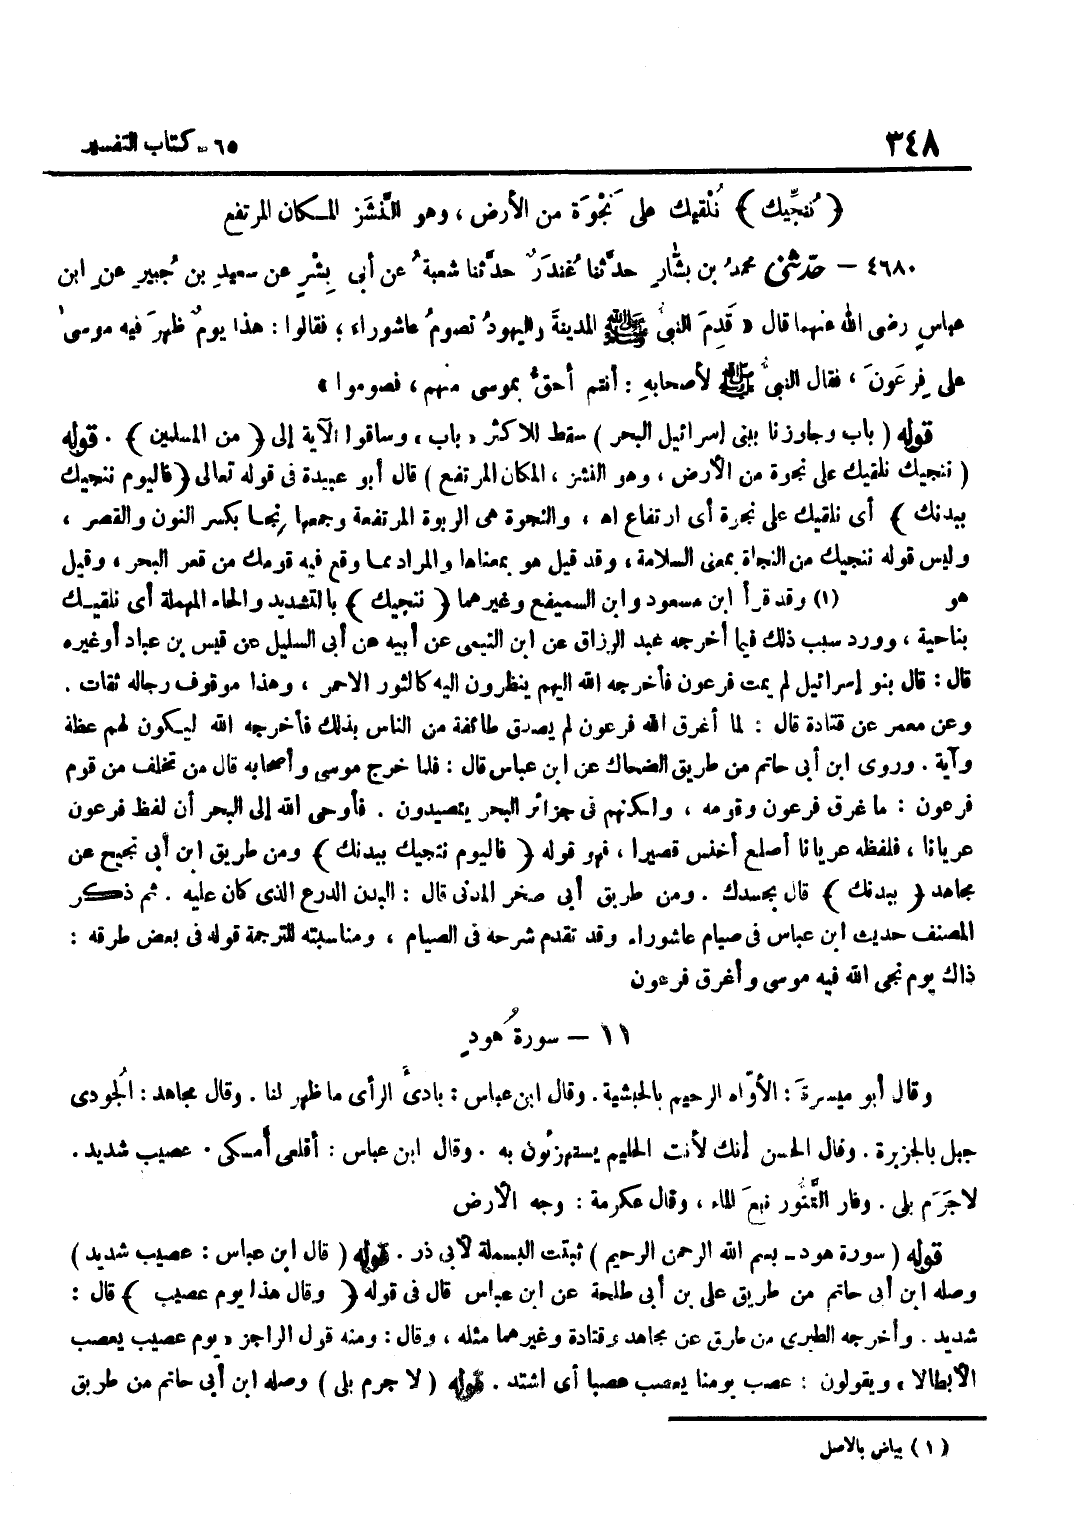 ٣٤٨
٦٥ - كتاب التفسير
﴿ نُنَجِّيك ﴾ نُلْقيك على نَجْوَة من الأرض ، وهو النَّشَز المـكان المرتفع
٤٦٨٠ – حدثنى محمدُ بن بشَّار حدَّثنا غُندَرٌ حدَّثنا شعبةُ عن أبى بِشْرٍ عن سعيدِ بن جُبير عنِ ابن
عباسٍ رضى الله عنهما قال « قَدِمَ النبىُّ ﷺ المدينةَ واليهودُ تصومُ عاشوراء ؛ فقالوا : هذا يومٌ ظهرَ فيه موسىٰ
على فِرعَونَ ، فقال النبىُّ ﷺ لأصحابهِ : أنتم أحقُّ بموسى منهم ، فصوموا »
قوله ( باب وجاوزنا ببنى إسرائيل البحر ) سقط للاكثر « باب ، وساقوا الآية إلى ﴿ من المسلمين ﴾ . قوله
( ننجيك نلقيك على نجوة من الأرض ، وهو النشز ، المكان المرتفع ) قال أبو عبيدة فى قوله تعالى ﴿ فاليوم ننجيك
ببدنك ﴾ أى نلقيك على نجوة أى ارتفاع اه ، والنجوة هى الربوة المرتفعة وجمعها نجا بكسر النون والقصر ،
وليس قوله ننجيك من النجاة بمعنى السلامة ، وقد قيل هو بمعناها والمراد مما وقع فيه قومك من قعر البحر ، وقيل
هو (١) وقد قرأ ابن مسعود وابن السميفع وغيرهما ﴿ ننجيك ﴾ بالتشديد والحاء المهملة أى نلقيـك
بناحية ، وورد سبب ذلك فيما أخرجه عبد الرزاق عن ابن التيمى عن أبيه عن أبى السليل عن قيس بن عباد أو غيره
قال : قال بنو إسرائيل لم يمت فرعون فأخرجه الله اليهم ينظرون اليه كالثور الاحمر ، وهذا موقوف رجاله ثقات .
وعن معمر عن قتادة قال : لما أغرق الله فرعون لم يصدق طائفة من الناس بذلك فأخرجه الله ليكون لهم عظة
وآية . وروى ابن أبى حاتم من طريق الضحاك عن ابن عباس قال : فلما خرج موسى وأصحابه قال من تخلف من قوم
فرعون : ما غرق فرعون وقومه ، ولكنهم فى جزائر البحر يتصيدون . فأوحى الله إلى البحر أن لفظ فرعون
عريانا ، فلفظه عريانا أصلع أخنس قصيرا ، فهو قوله ﴿ فاليوم ننجيك ببدنك ﴾ ومن طريق ابن أبى نجيح عن
مجاهد ﴿ ببدنك ﴾ قال بجسدك . ومن طريق أبى صخر المدنى قال : البدن الدرع الذى كان عليه . ثم ذكر
المصنف حديث ابن عباس فى صيام عاشوراء وقد تقدم شرحه فى الصيام ، ومناسبته للترجمة قوله فى بعض طرقه :
ذاك يوم نجى الله فيه موسى وأغرق فرعون
١١ – سورةُ هودٍ
وقال أبو ميسرةَ : الأوّاه الرحيم بالحبشية . وقال ابن عباس : بادئَ الرأى ما ظهر لنا . وقال مجاهد : الجُودى
جبل بالجزيرة . وقال الحسن إنك لأنت الحليم يستهزئون به . وقال ابن عباس : أقلعى أمسكى . عصيب شديد .
لاجَرَم بلى . وفار التَّنُّور نبعَ الماء ، وقال عكرمة : وجه الأرض
قوله ( سورة هود – بسم الله الرحمن الرحيم ) ثبتت البسملة لأبى ذر . قوله ( قال ابن عباس : عصيب شديد )
وصله ابن أبى حاتم من طريق على بن أبى طلحة عن ابن عباس قال فى قوله ﴿ وقال هذا يوم عصيب ﴾ قال :
شديد . وأخرجه الطبرى من طرق عن مجاهد وقتادة وغيرهما مثله ، وقال : ومنه قول الراجز « يوم عصيب يعصب
الأبطالا ، ويقولون : عصب يومنا يعصب عصبا أى اشتد . قوله ( لا جرم بلى ) وصله ابن أبى حاتم من طريق
( ١ ) بياض بالاصل